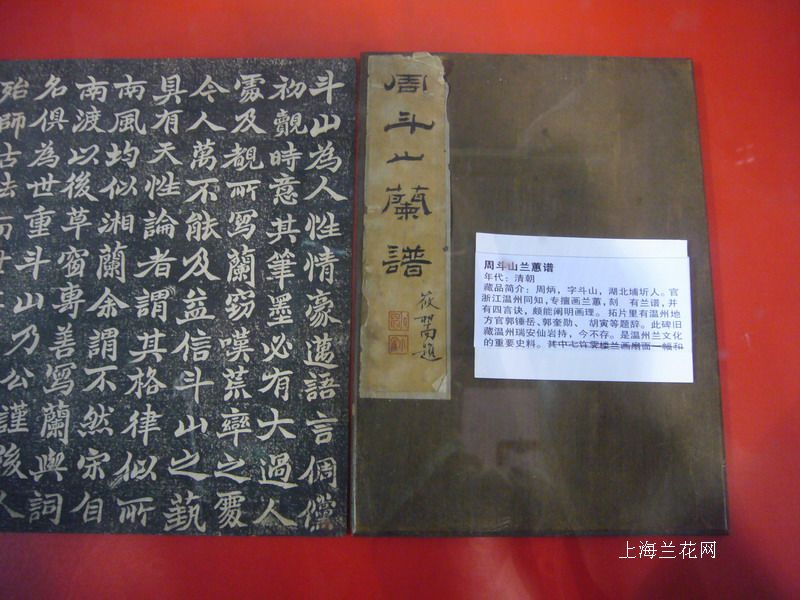 斗山為人性情豪邁語言倜儻
初觀時意其筆墨必有大過人
處及覩所寫蘭竊嘆荒率之處
今人萬不能及益信斗山之藝
具有天性論者謂其格律似所
南風均似湘蘭余謂不然宋自
南渡以後草窗專善寫蘭與詞
名俱為世重斗山乃公謹後人
殆師古法而世
周斗山蘭譜
題
周斗山兰蕙谱
年代：清朝
藏品简介：周炳，字斗山，湖北埔圻人。官
浙江温州同知，专擅画兰蕙，刻 有兰谱，并
有四言诀，颇能阐明画理。 拓片里有温州地
方官郭锺岳、郭奎勋、 胡寅等题辞。此碑旧
藏温州瑞安仙岩持，今不存。是温州兰文化
的重要史料。其中七许霁楼兰画扇面一幅和
上海兰花网